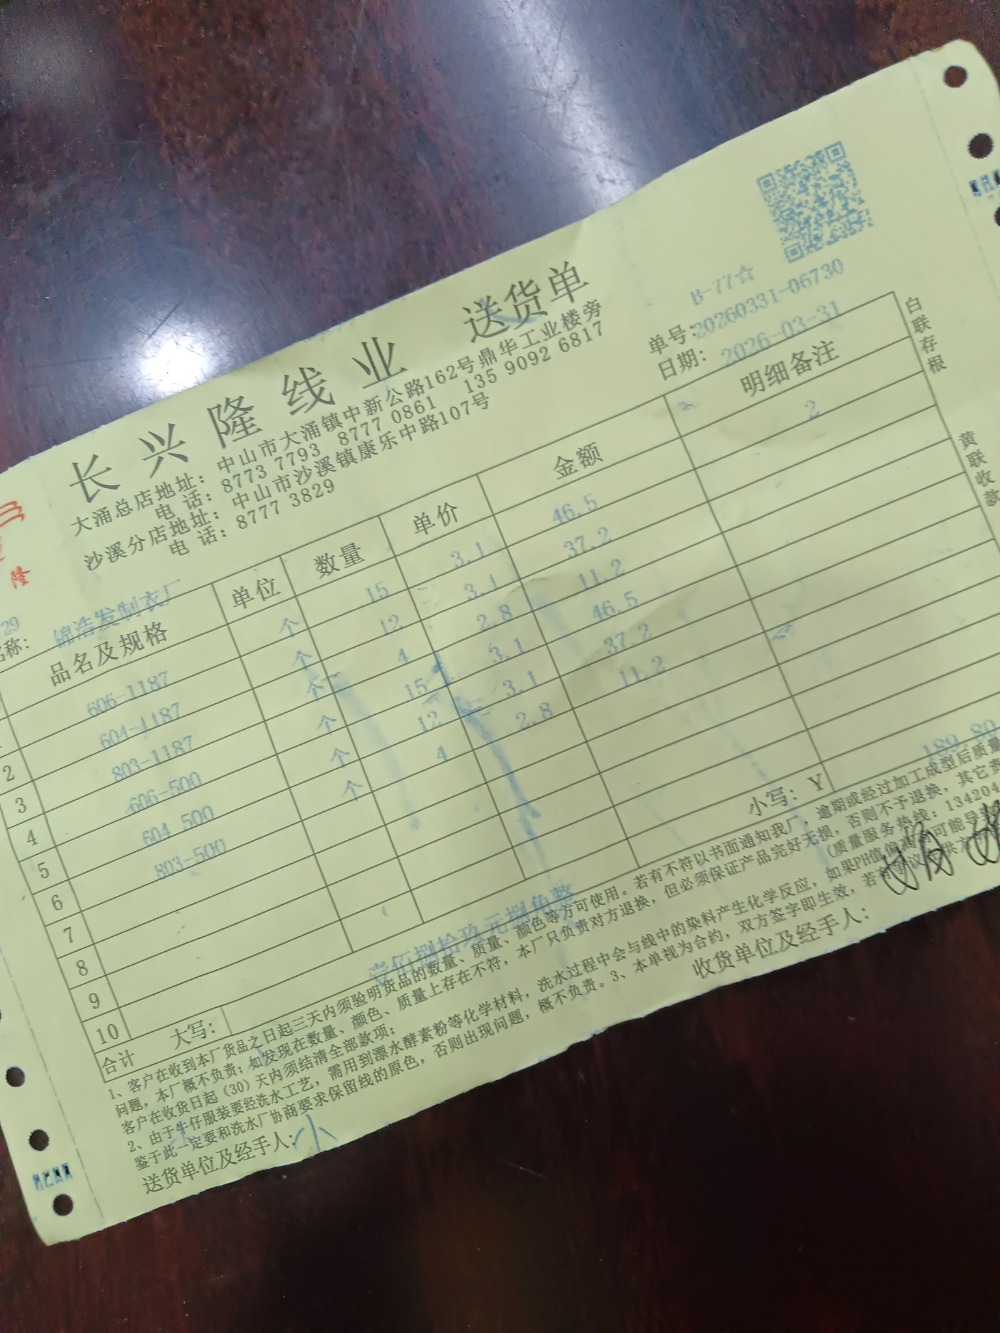 长兴隆线业 送货单
B-77☆
大涌总店地址：中山市大涌镇中新公路162号鼎华工业楼旁
电 话：8773 7793 8777 0861 135 9092 6817
沙溪分店地址：中山市沙溪镇康乐中路107号
电 话：8777 3829
单号：20260331-06730
日期：2026-03-31
隆
29
名称： 锦浩发制衣厂
品名及规格 单位 数量 单价 金额 明细备注
1 606-1187 个 15 3.1 46.5 2
2 604-1187 个 12 3.1 37.2
3 803-1187 个 4 2.8 11.2
4 606-500 个 15 3.1 46.5
5 604-500 个 12 3.1 37.2
6 803-500 个 4 2.8 11.2
7
8
9
10
合计 大写： 壹佰捌拾玖元捌角整 小写：Y 189.80
1、客户在收到本厂货品之日起三天内须验明货品的数量、质量、颜色等方可使用。若有不符以书面通知我厂，逾期或经过加工成型后质量
问题，本厂概不负责；如发现在数量、颜色、质量上存在不符，本厂只负责对方退换，但必须保证产品完好无损，否则不予退换，其它责
客户在收货日起（30）天内须结清全部款项；
（质量服务热线：134204
2、由于牛仔服装要经洗水工艺，需用到漂水酵素粉等化学材料，洗水过程中会与线中的染料产生化学反应，如果PH值偏高 可能导
鉴于此一定要和洗水厂协商要求保留线的原色，否则出现问题，概不负责。3、本单视为合约，双方签字即生效，若有争议
送货单位及经手人： 小
收货单位及经手人：
白联存根
黄联收